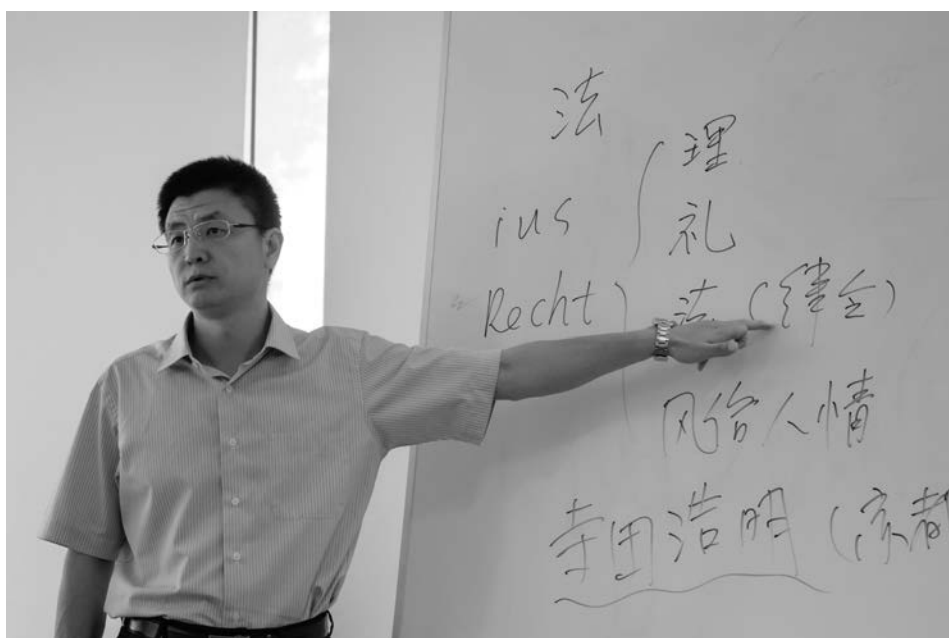 法
理
ius
礼
Recht
法 (律令)
风俗人情
寺田浩明 (京都